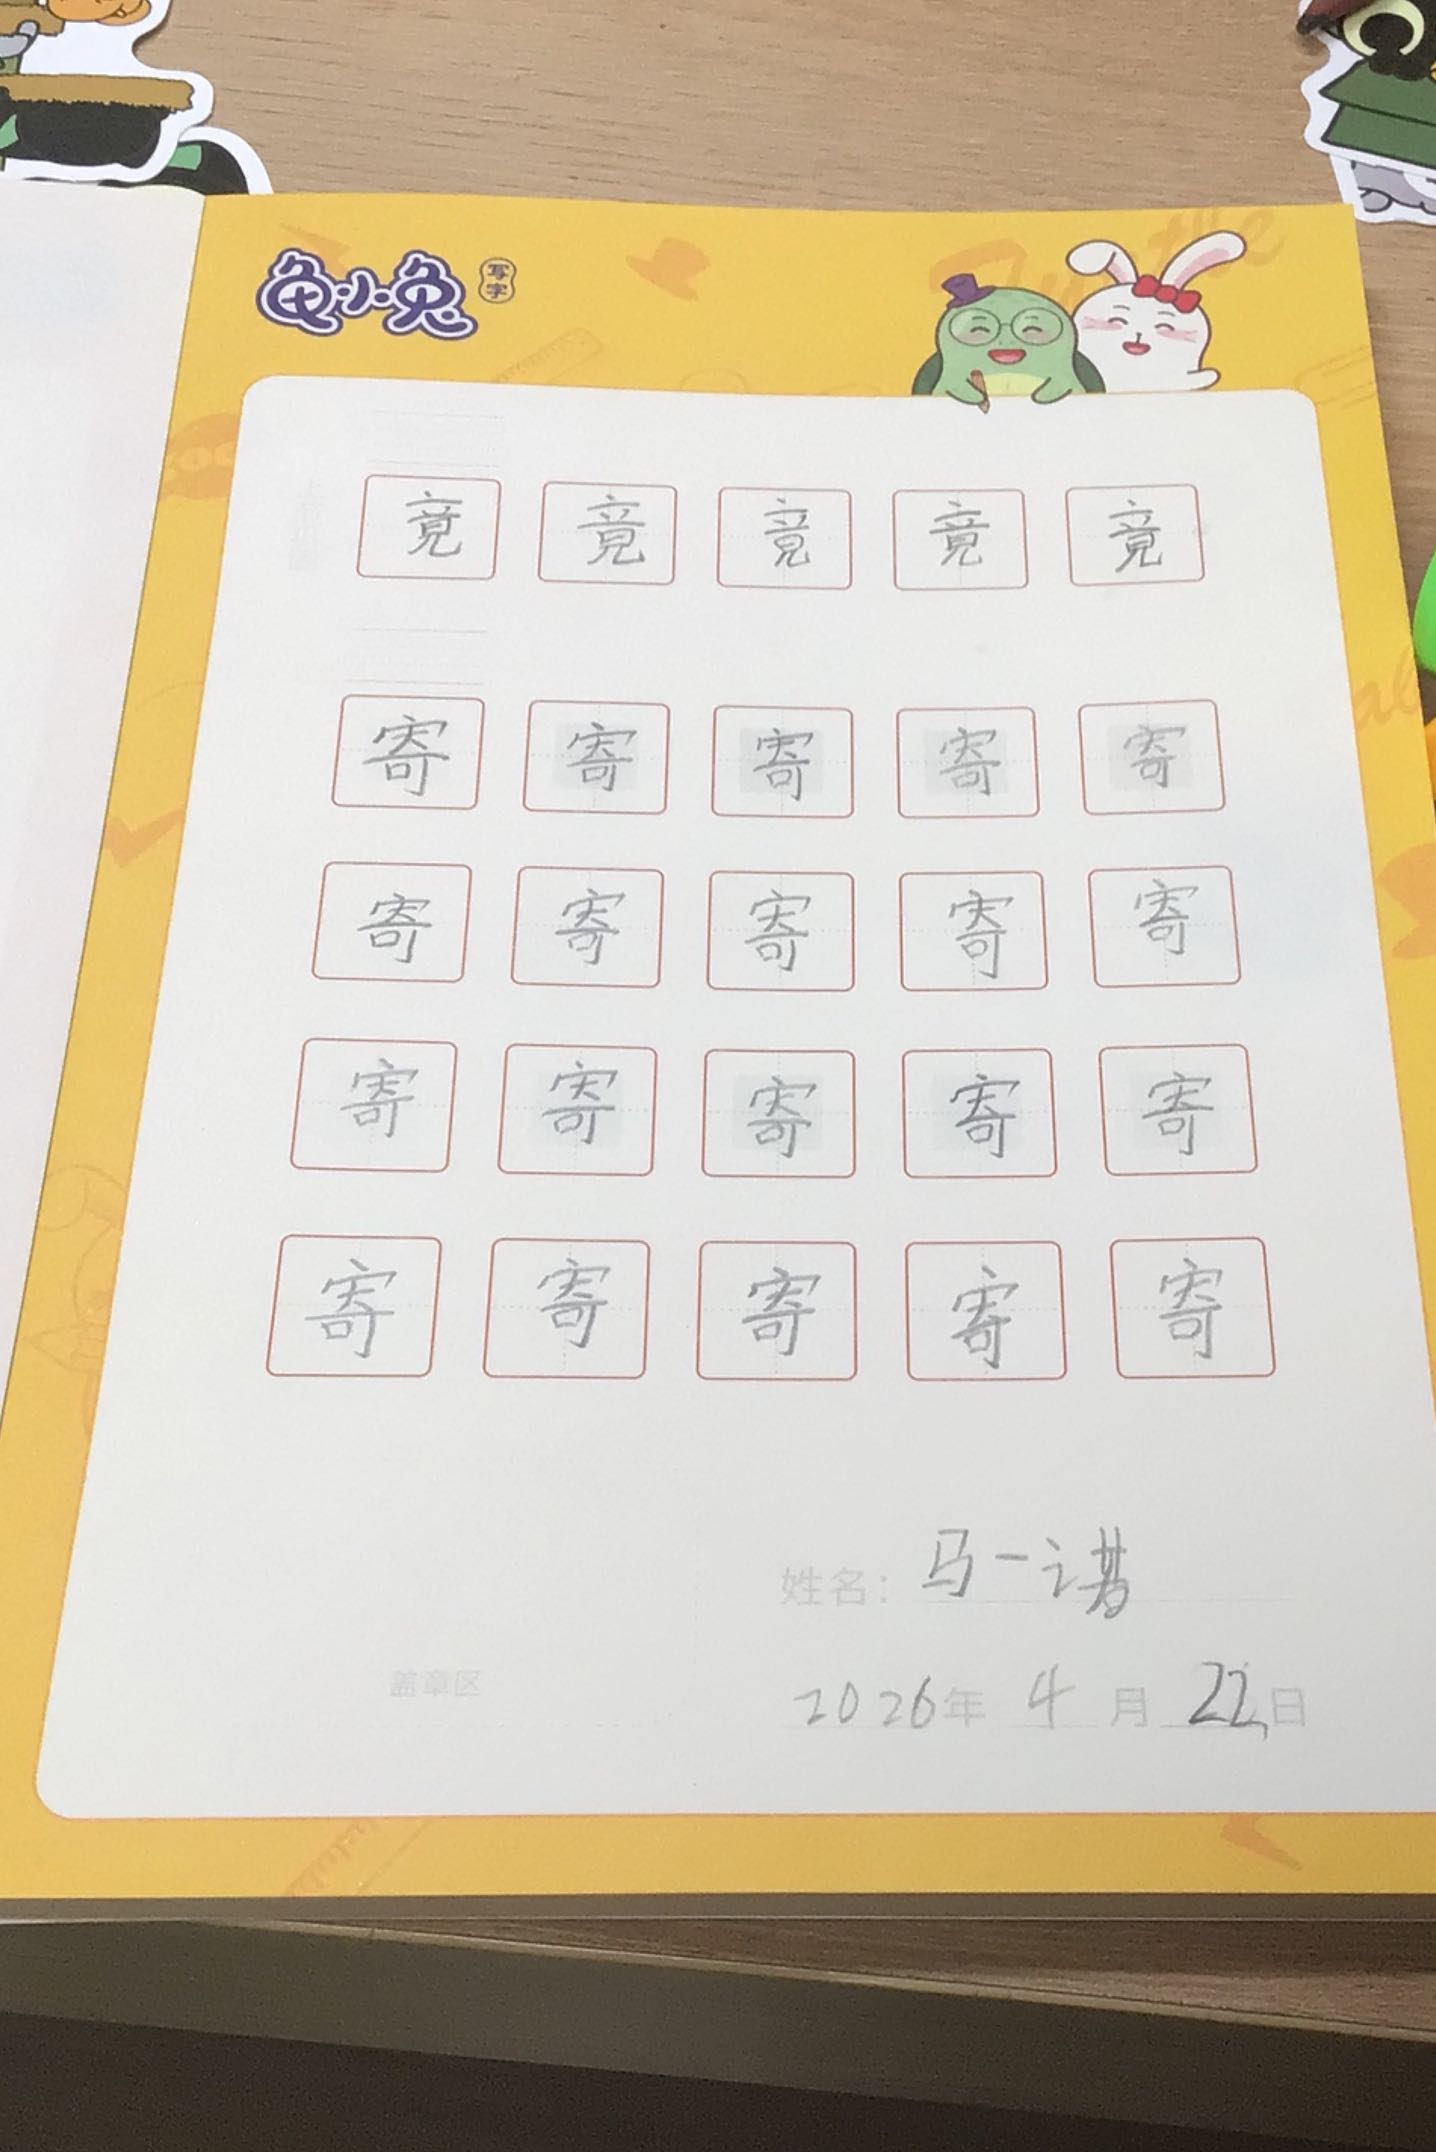 龟小兔 写字
竟 竟 竟 竟 竟
寄 寄 寄 寄 寄
寄 寄 寄 寄 寄
寄 寄 寄 寄 寄
寄 寄 寄 寄 寄
姓名：马一诺
盖章区
2026年 4 月 22日